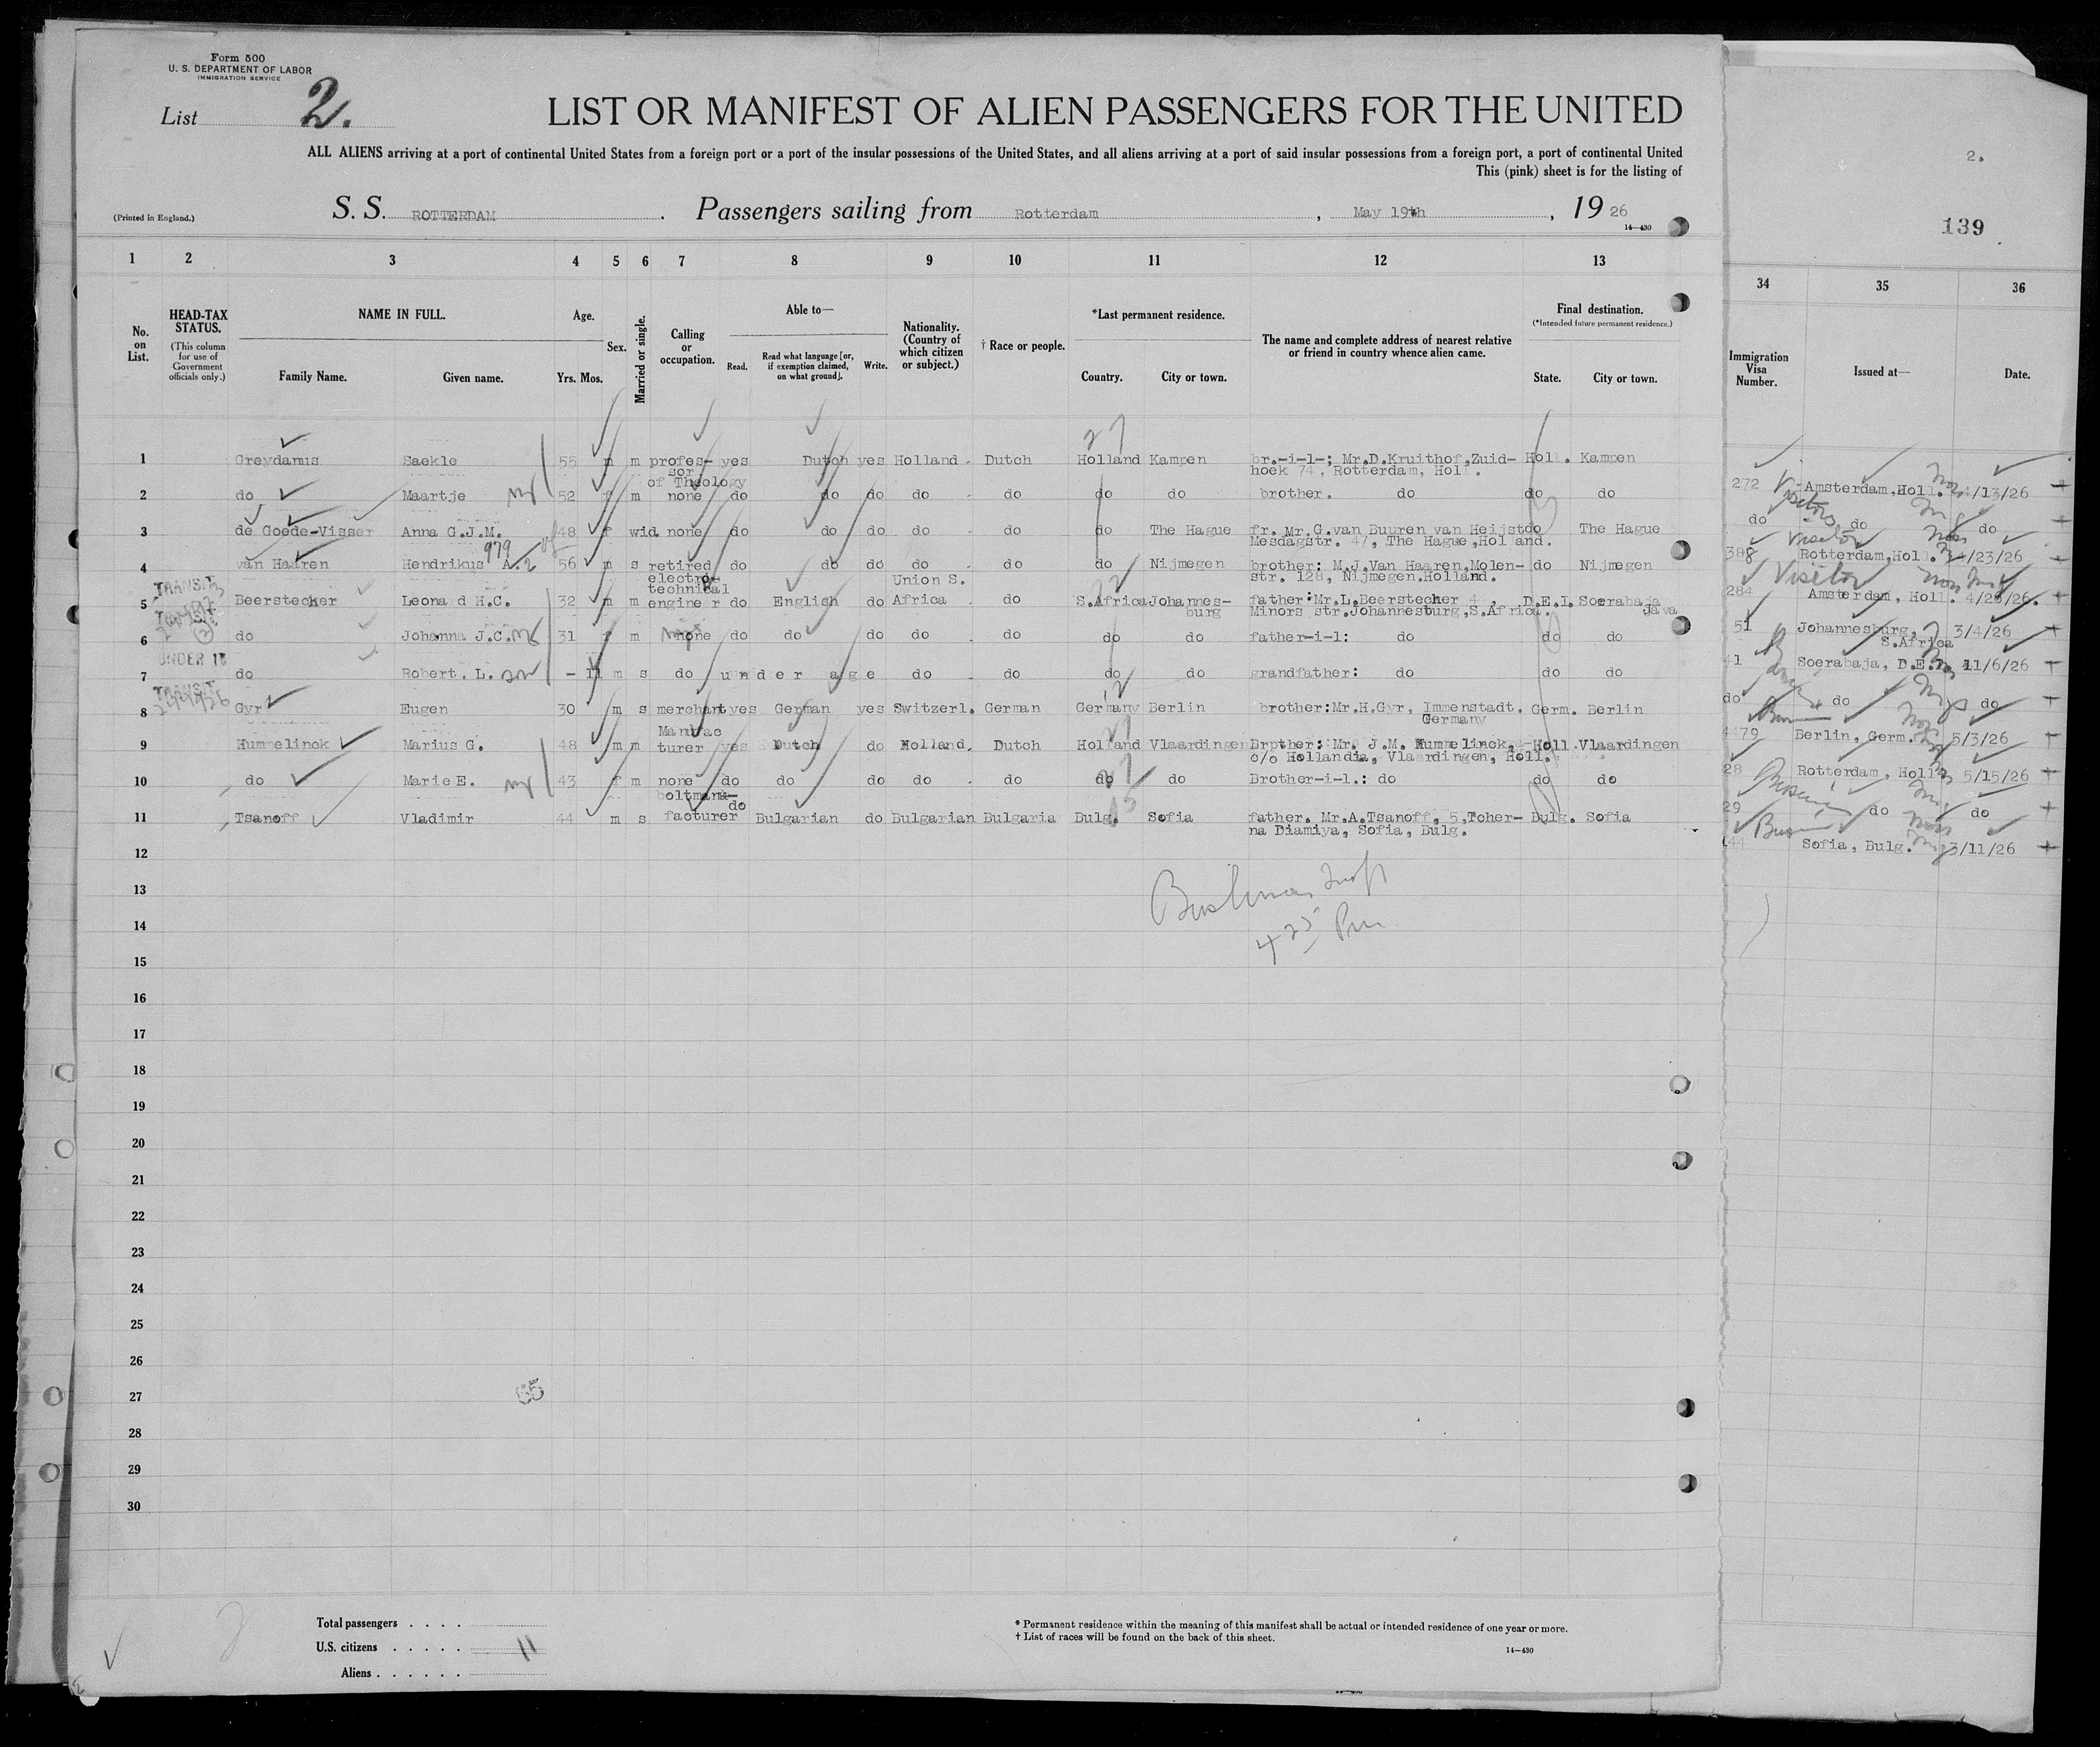 Form 500
U. S. DEPARTMENT OF LABOR
IMMIGRATION SERVICE
List 2.
LIST OR MANIFEST OF ALIEN PASSENGERS FOR THE UNITED
ALL ALIENS arriving at a port of continental United States from a foreign port or a port of the insular possessions of the United States, and all aliens arriving at a port of said insular possessions from a foreign port, a port of continental United
This (pink) sheet is for the listing of
(Printed in England.) S. S. ROTTERDAM. Passengers sailing from Rotterdam, May 19th, 19 26
14—430
2.
139
1 2 3 4 5 6 7 8 9 10 11 12 13 34 35 36
No. on List.
HEAD-TAX STATUS.
(This column for use of Government officials only.)
NAME IN FULL.
Family Name. Given name.
Age.
Yrs. Mos.
Sex.
Married or single.
Calling or occupation.
Able to—
Read. Read what language [or, if exemption claimed, on what ground]. Write.
Nationality. (Country of which citizen or subject.)
† Race or people.
*Last permanent residence.
Country. City or town.
The name and complete address of nearest relative or friend in country whence alien came.
Final destination.
(*Intended future permanent residence.)
State. City or town.
Immigration Visa Number.
Issued at—
Date.
27
1 Greydanus Saekle 55 m m profes- yes Dutch yes Holland - Dutch Holland Kampen br.-i-l-; Mr.D.Kruithof,Zuid- Holl. Kampen
sor hoek 74, Rotterdam, Holl.
of Theology
2 do Maartje 52 f m none do do do do - do do do brother. do do do
3 de Goede-Visser Anna G.J.M. 48 f wid. none do do do do - do do The Hague fr. Mr.G.van Buuren van Heijst do The Hague
Mesdagstr. 47, The Hague,Holland.
979
4 van Haaren Hendrikus A. 56 m s retired do do do do - do do Nijmegen brother: M.J.Van Haaren,Molen- do Nijmegen
str. 128, Nijmegen.Holland.
electro-
technical Union S.
TRANSIT
5 Beerstecher Leona d H.C. 32 m m engineer do English do Africa do S.Africa Johannes- father:Mr.L.Beerstecher 4 , D.E.I. Soerabaja
burg Minors str.Johannesburg,S.Africa. Java
TRANSIT
6 do Johanna J.C. 31 f m none do do do do - do do do father-i-l: do do do
UNDER 16
7 do Robert. L. - 11 m s do under age do - do do do grandfather: do do do
TRANSIT
8 Gyr Eugen 30 m s merchant yes German yes Switzerl. German Germany Berlin brother:Mr.H.Gyr, Immenstadt. Germ. Berlin
Germany
Manufac
9 Hummelinck Marius G. 48 m m turer yes Dutch do Holland. Dutch Holland Vlaardingen Brpther: Mr. J.M. Hummelinck, Holl. Vlaardingen
c/o Hollandia, Vlaardingen, Holl.
10 do Marie E. 43 f m none do do do do - do do do Brother-i-l.: do do do
boltmanu-
do
11 Tsanoff Vladimir 44 m s facturer Bulgarian do Bulgarian Bulgaria Bulg. Sofia father. Mr.A.Tsanoff, 5,Tcher- Bulg. Sofia
na Diamiya, Sofia, Bulg.
272 Amsterdam,Holl. 4/13/26
do do do
Visitor
388 Rotterdam,Holl. 4/23/26
Visitor
284 Amsterdam, Holl. 4/26/26.
51 Johannesburg, 3/4/26
S.Africa
41 Soerabaja, D.E.I. 11/6/26
do do do
4479 Berlin, Germ. 5/3/26
28 Rotterdam, Holl. 5/15/26
29 do do
Sofia, Bulg. 3/11/26
12
13
14
4 25 Pm
15
16
17
18
19
20
21
22
23
24
25
26
27
65
28
29
30
Total passengers . . . .
U.S. citizens . . . . . 11
Aliens . . . . . .
* Permanent residence within the meaning of this manifest shall be actual or intended residence of one year or more.
† List of races will be found on the back of this sheet.
14—430